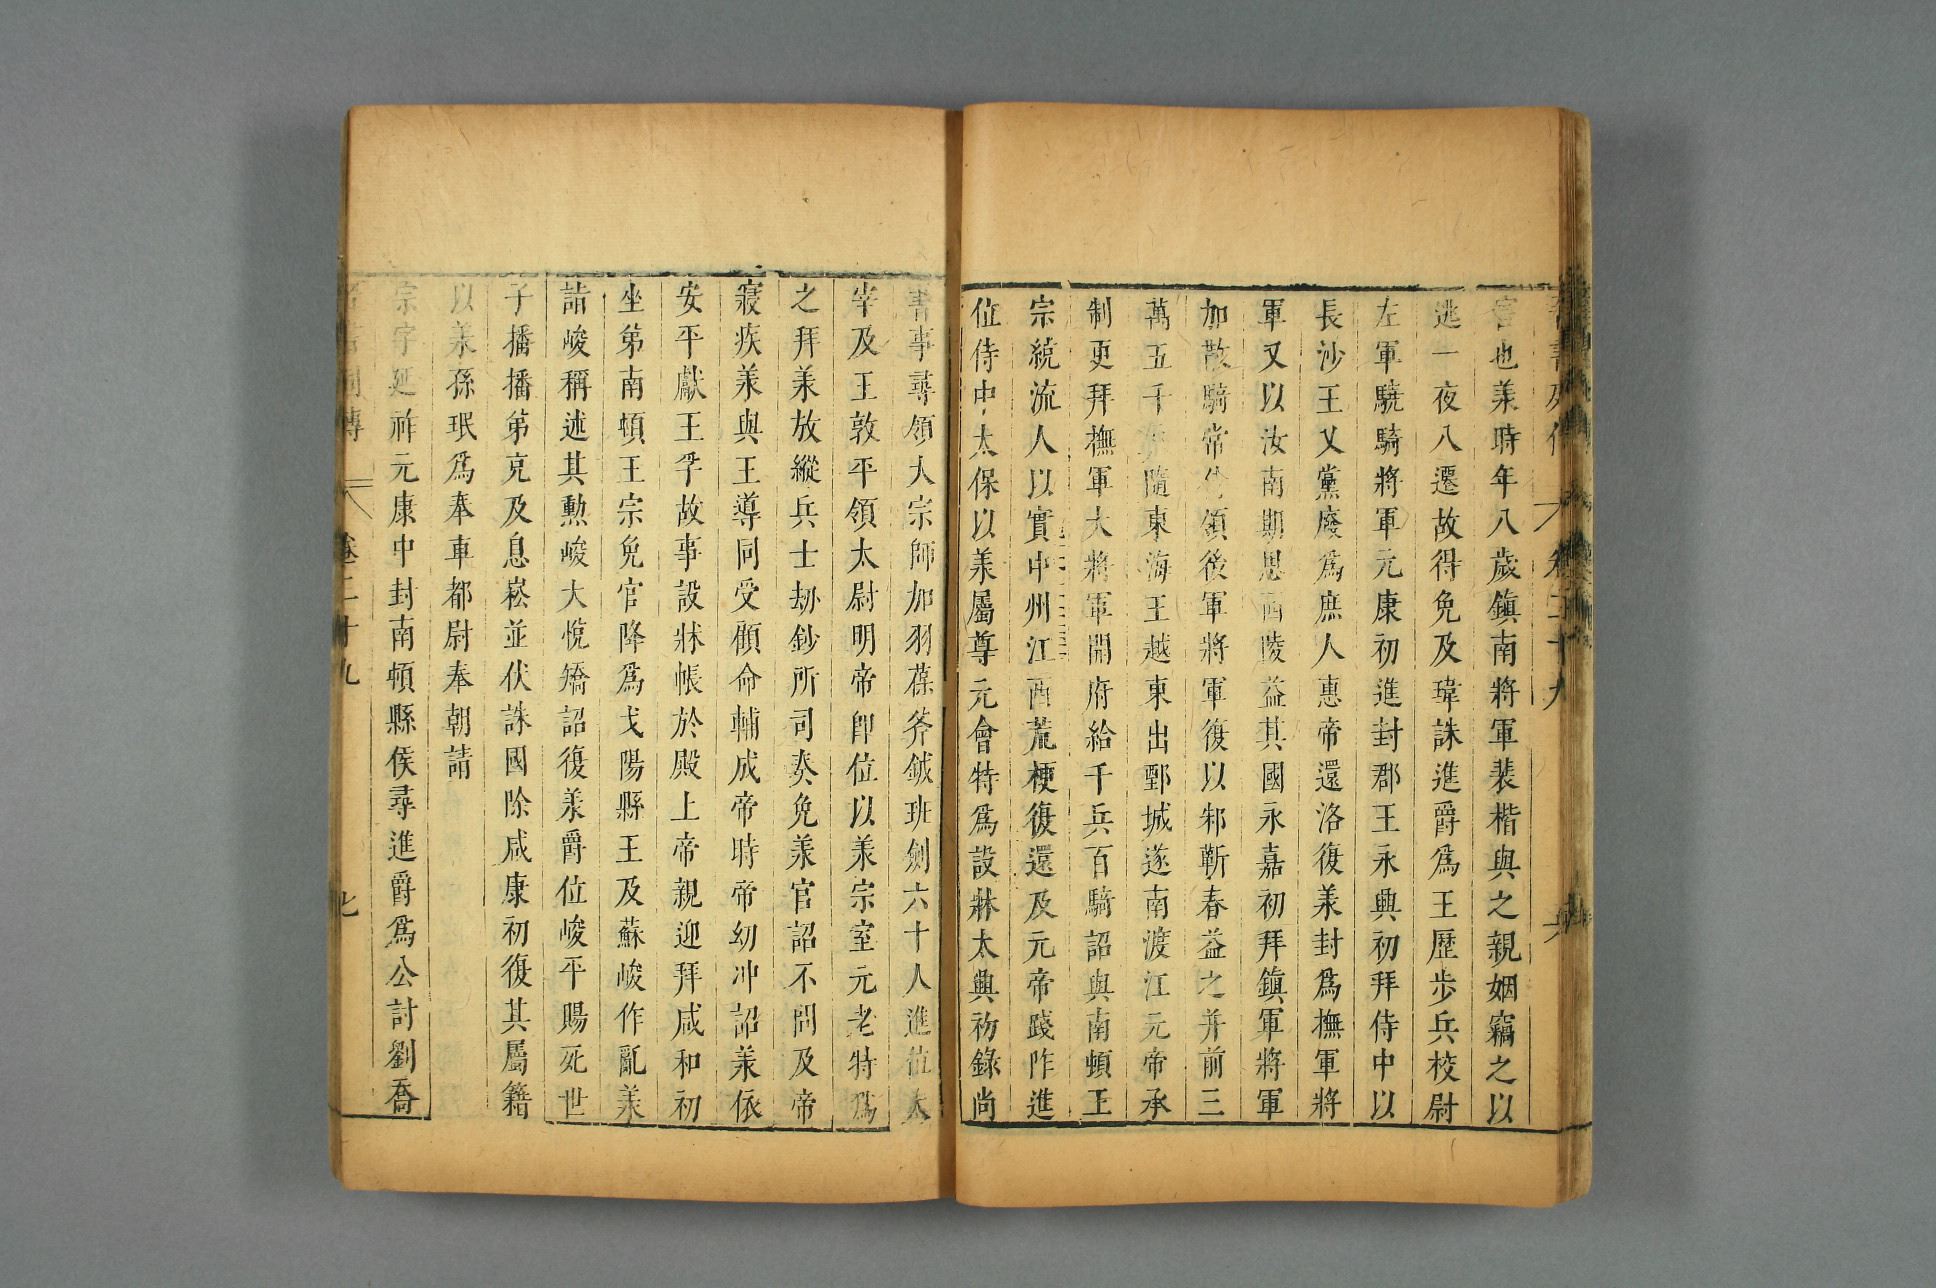 害也羕時年八歲鎮南將軍裴楷與之親姻竊之以
逃一夜八遷故得免及瑋誅進爵爲王歷步兵校尉
左軍驍騎將軍元康初進封郡王永興初拜侍中以
長沙王乂黨廢爲庶人惠帝還洛復羕封爲撫軍將
軍又以汝南期思西陵益其國永嘉初拜鎮軍將軍
加散騎常侍領後軍將軍復以邾蘄春益之并前三
萬五千戸隨東海王越東出鄄城遂南渡江元帝承
制更拜撫軍大將軍開府給千兵百騎詔與南頓王
宗統流人以實中州江西荒梗復還及元帝踐阼進
位侍中太保以羕屬尊元會特爲設牀太興初錄尚
書事尋領大宗師加羽葆斧鉞班劍六十人進位太
宰及王敦平領太尉明帝即位以羕宗室元老特爲
之拜羕放縱兵士劫鈔所司奏免羕官詔不問及帝
寢疾羕與王導同受顧命輔成帝時帝幼冲詔羕依
安平獻王孚故事設牀帳於殿上帝親迎拜咸和初
坐第南頓王宗免官降爲弋陽縣王及蘇峻作亂羕
詣峻稱述其勲峻大悅矯詔復羕爵位峻平賜死世
子播播第克及息崧並伏誅國除咸康初復其屬籍
以羕孫珉爲奉車都尉奉朝請
宗字延祚元康中封南頓縣侯尋進爵爲公討劉喬
卷二十九
七